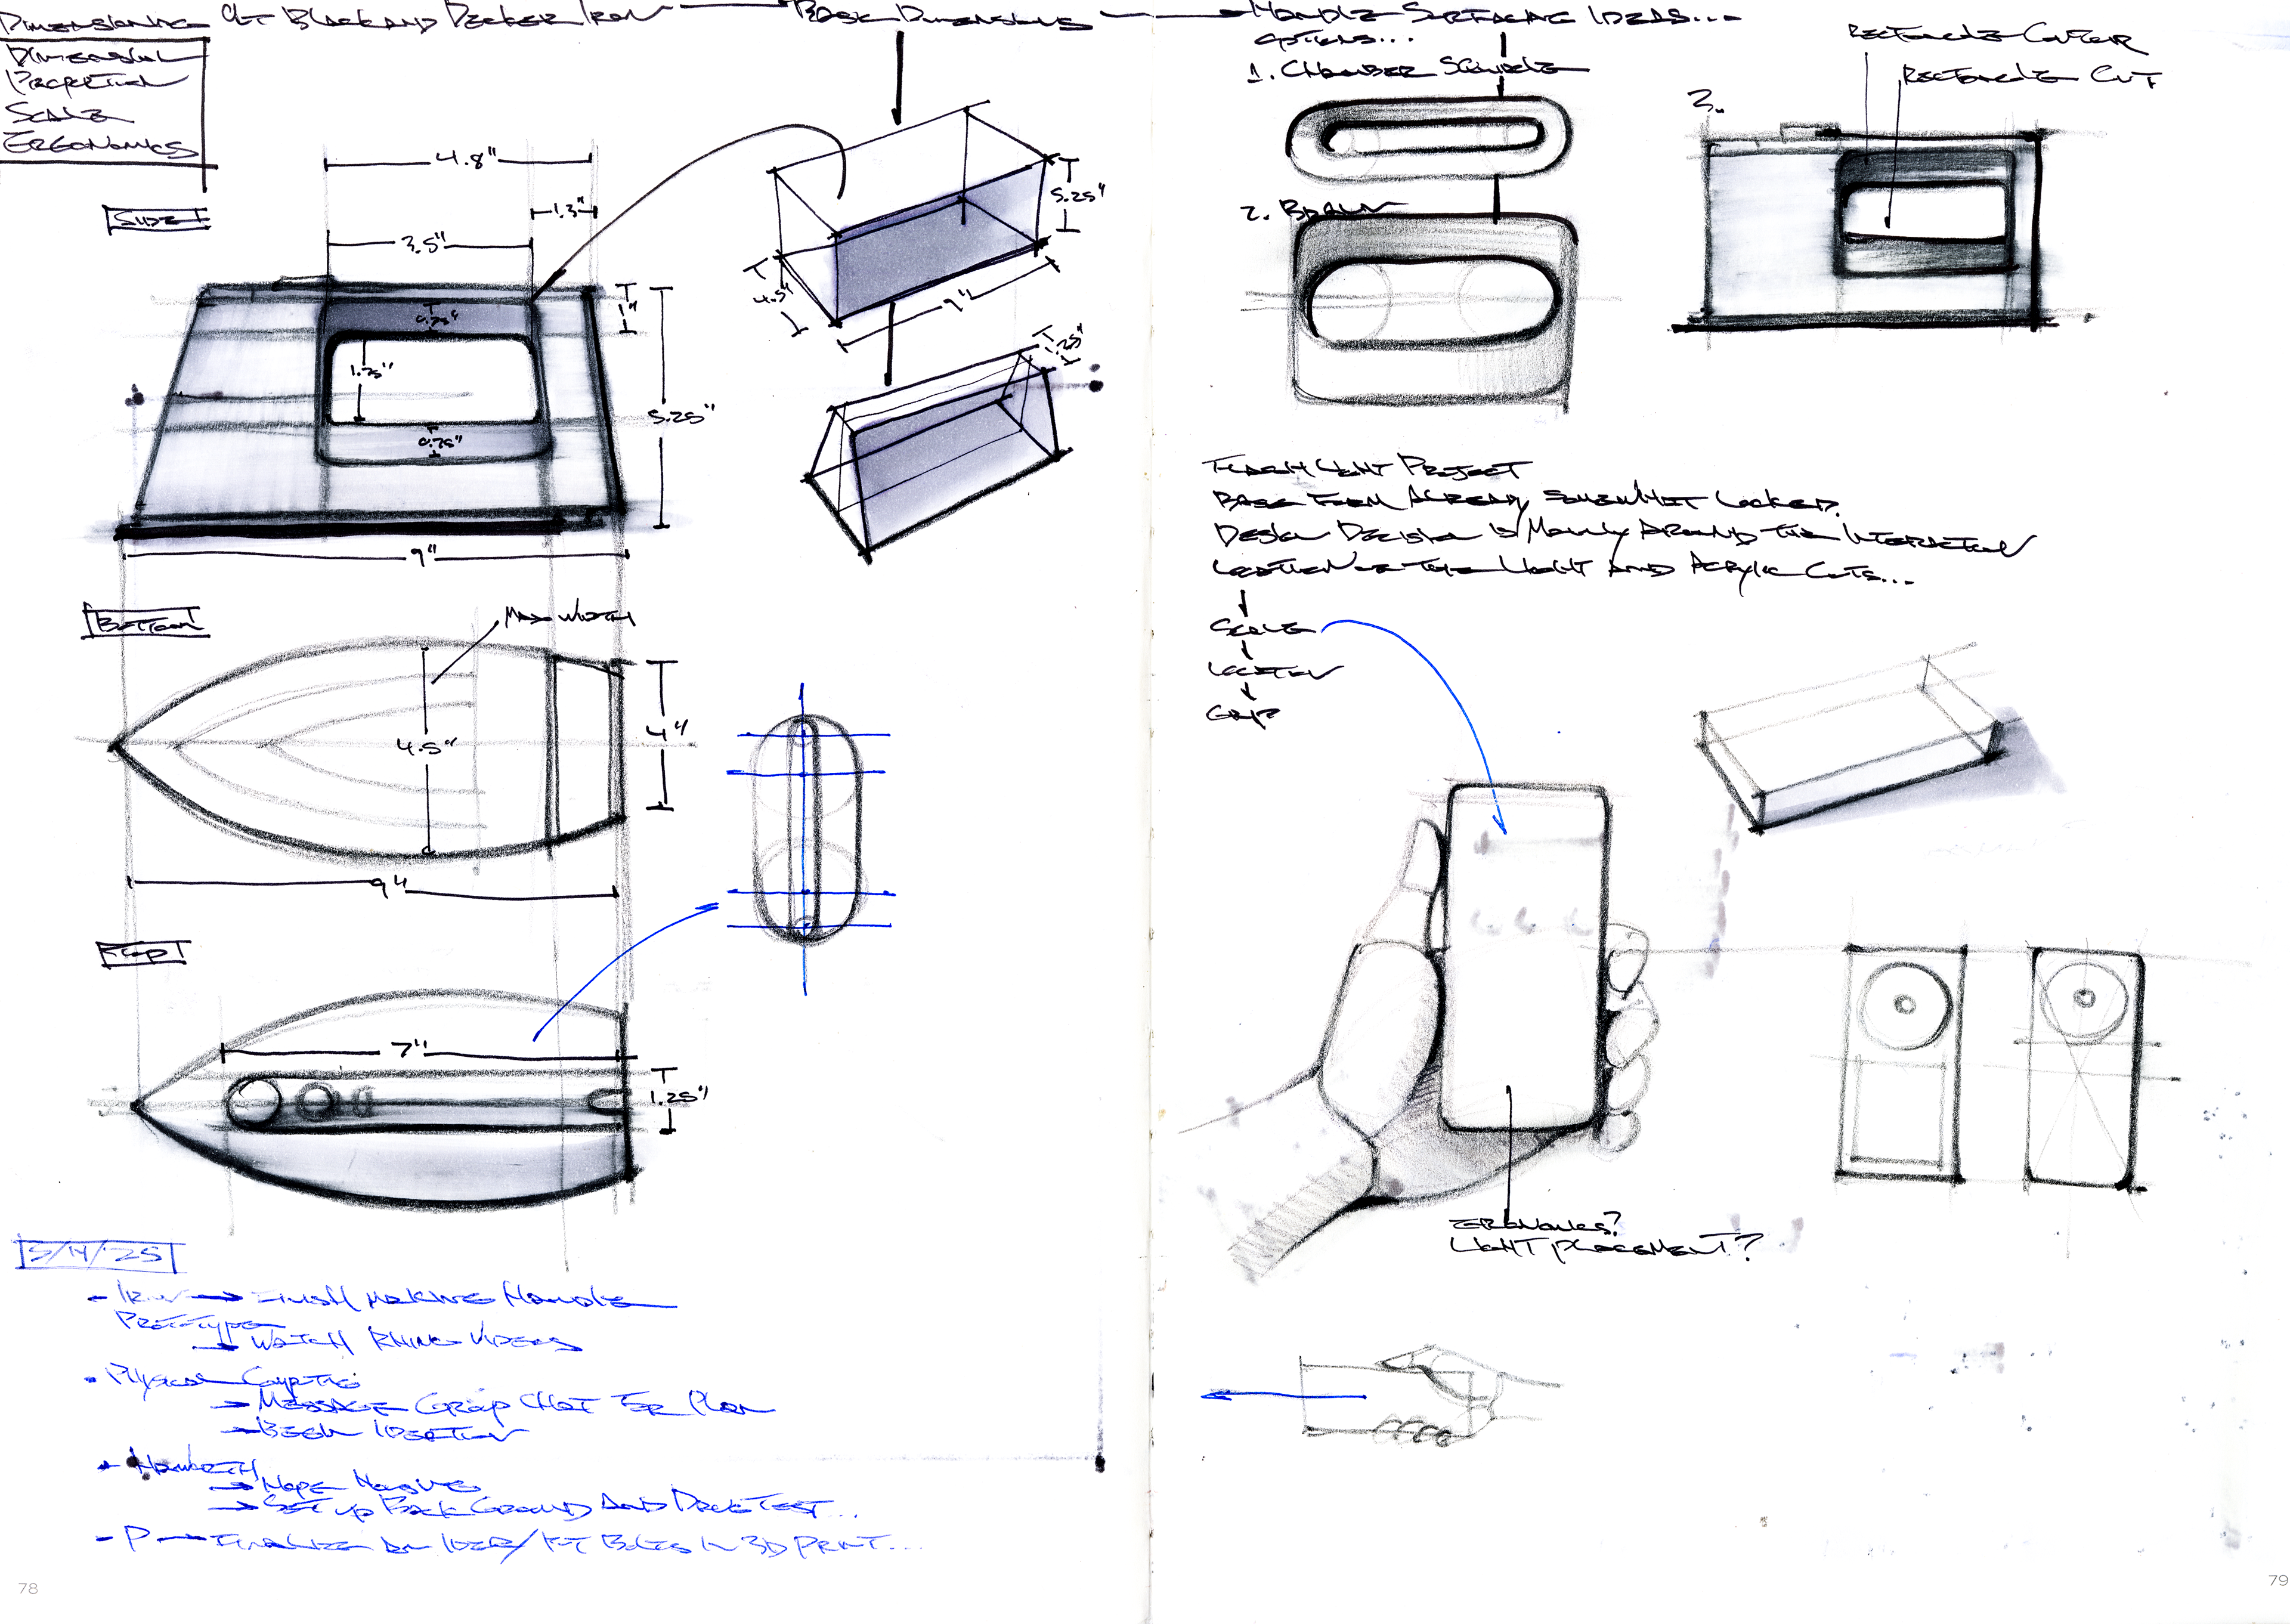 Dimensioning of Black and Decker Iron
Basic Dimensions
Handle Surfacing Ideas...
Dimensional
Proportion
Scale
Ergonomics
Side
4.8"
1.3"
3.5"
1"
0.75"
1.75"
0.75"
5.25"
9"
5.25"
4.5"
9"
1.25"
Bottom
Max Width
4.5"
4"
9"
Top
7"
1.25"
5/14/25
- Iron → Finish making Handle
Prototype
→ Watch Rhino Videos
- Physical
→ Message Group Chat for Plan
→ Begin Ideation
→ Set up Back Ground and
- P → Finalize an Idea/ in 3D print...
78
Options...
1.
2. Braun
3.
Rectangle Contour
Rectangle Cut
Flash Light Project
Base Form Already Somewhat Locked.
Design Decision is Mainly Around the Interaction
Location of the Light and Acrylic Cuts...
Scale
Location
Grip
Ergonomics?
Light placement?
79